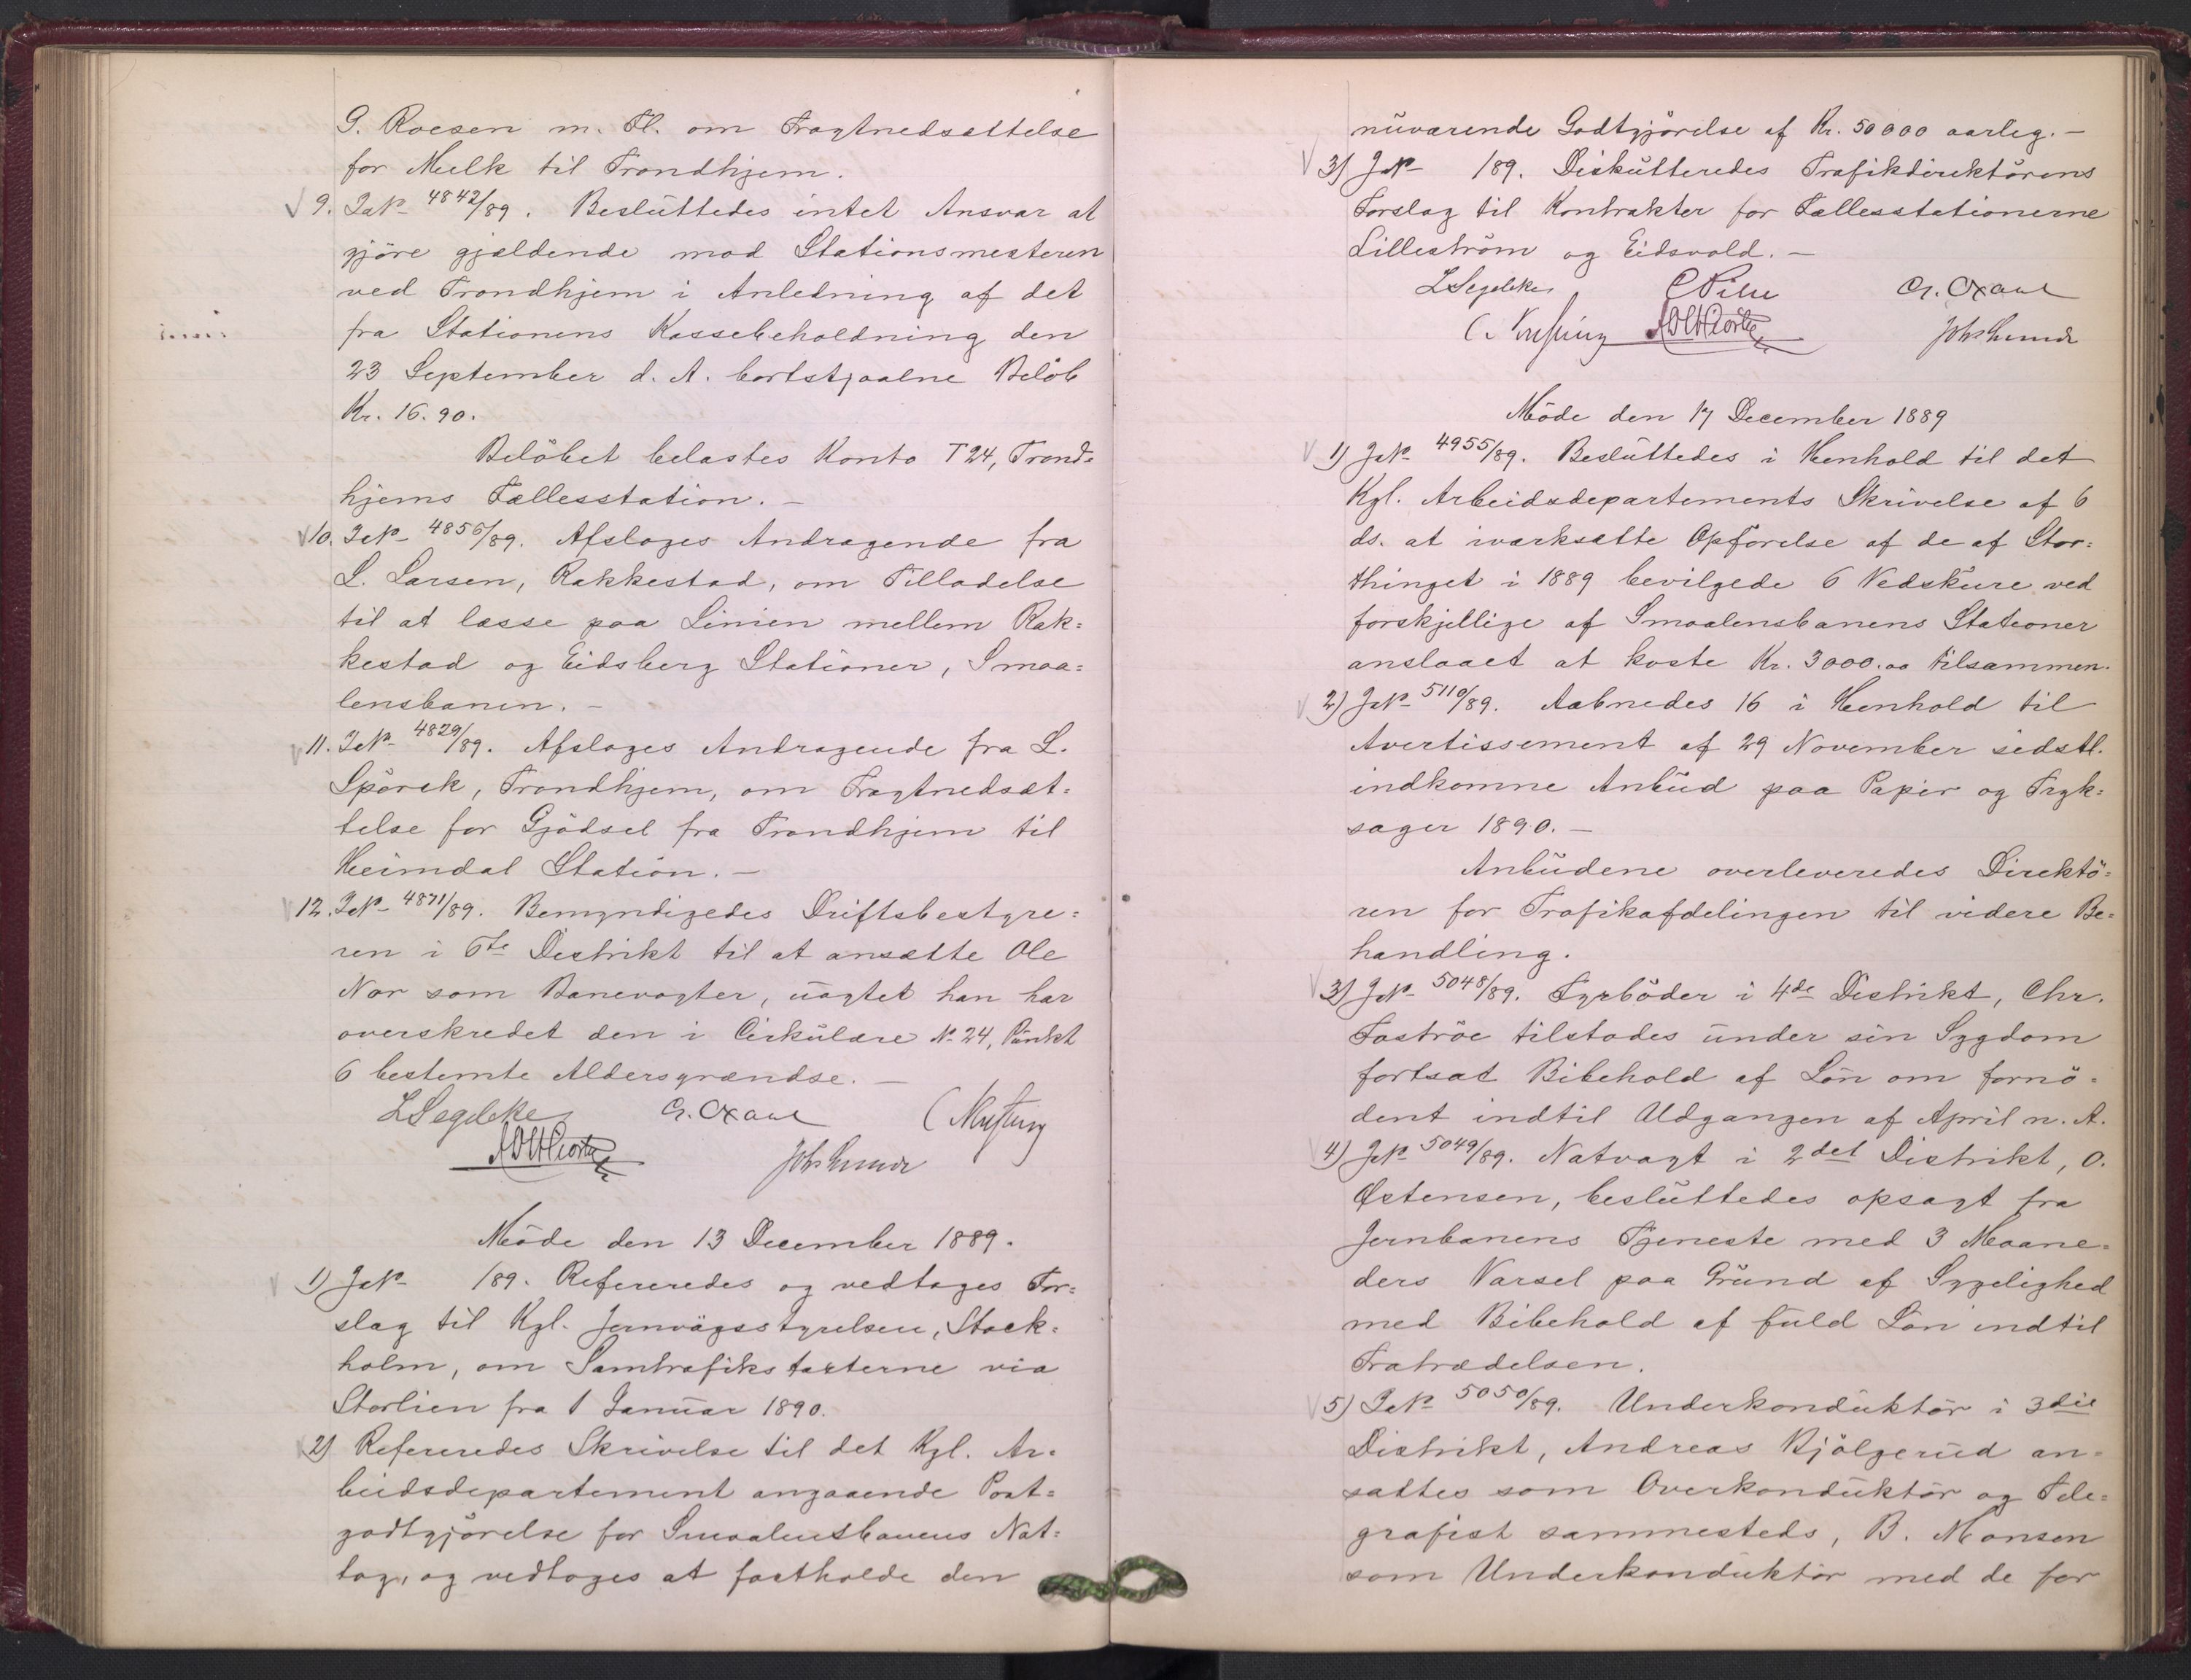 G. Roesen m. Fl. om Fragtnedsættelse
for Melk til Trondhjem.
9. JNo 4842/89. Besluttedes intet Ansvar at
gjöre gjældende mod Stationsmesteren
ved Trondhjem i Anledning af det
fra Stationens Kassebeholdning den
23 September d. A. bortstjaalne Belöb
Kr. 16.90.
Belöbet belastes Konto T 24, Trond=
hjems Fællesstation. —
10. JNo 4856/89. Afsloges Andragende fra
L. Larsen, Rakkestad, om Tilladelse
til at læsse paa Linien mellem Rak=
kestad og Eidsberg Stationer, Smaa=
lensbanen. —
11. JNo 4829/89. Afsloges Andragende fra L.
Spörck, Trondhjem, om Fragtnedsæt=
telse for Gjödsel fra Trondhjem til
Heimdal Station. —
12. JNo 4871/89. Bemyndigedes Driftsbestyre=
ren i 6te Distrikt til at ansætte Ole
Nor som Banevogter, uagtet han har
overskredet den i Cirkulære No 24, Punkt
6 bestemte Aldersgrændse. —
L Segelcke G. Oxaal C Nussung
Joh. Lunde
Möde den 13 December 1889.
1) JNo /89. Refereredes og vedtoges For=
slag til Kgl. Jernvägsstyrelsen, Stock=
holm, om Samtrafikstaxterne via
Storlien fra 1 Januar 1890.
2) Refereredes Skrivelse til det Kgl. Ar=
beidsdepartement angaaende Post=
godtgjörelse for Smaalensbanens Nat=
tog, og vedtoges at fastholde den
nuværende Godtgjörelse af Kr. 50000 aarlig. —
3) JNo /89. Diskutteredes Trafikdirektörens
Forslag til Kontrakter for Fællesstationerne
Lilleström og Eidsvold. —
L Segelcke C Pihl G. Oxaal
C. Nussung Joh. Lunde
Möde den 17 December 1889
1) JNo 4955/89. Besluttedes i Henhold til det
Kgl. Arbeidsdepartements Skrivelse af 6
ds. at iværksætte Opförelse af de af Stor=
thinget i 1889 bevilgede 6 Vedskure ved
forskjellige af Smaalensbanens Stationer
anslaaet at koste Kr. 3000.00 tilsammen.
2) JNo 5110/89. Aabnedes 16 i Henhold til
Avertissement af 29 November sidstl.
indkomne Anbud paa Papir og Tryk=
sager 1890. —
Anbudene overleveredes Direktö=
ren for Trafikafdelingen til videre Be=
handling.
3) JNo 5048/89. Fyrböder i 4de Distrikt, Chr.
Foströe tilstodes under sin Sygdom
fortsat Bibehold af Lön om fornö=
dent indtil Udgangen af April n. A.
4) JNo 5049/89. Natvagt i 2det Distrikt, O.
Østensen, besluttedes opsagt fra
Jernbanens Tjeneste med 3 Maane=
ders Varsel paa Grund af Sygelighed
med Bibehold af fuld Lön indtil
Fratrædelsen.
5) JNo 5050/89. Underkonduktör i 3die
Distrikt, Andreas Kjölgerud an=
sattes som Overkonduktör og Tele=
grafist sammesteds, B. Monsen
som Underkonduktör med de for